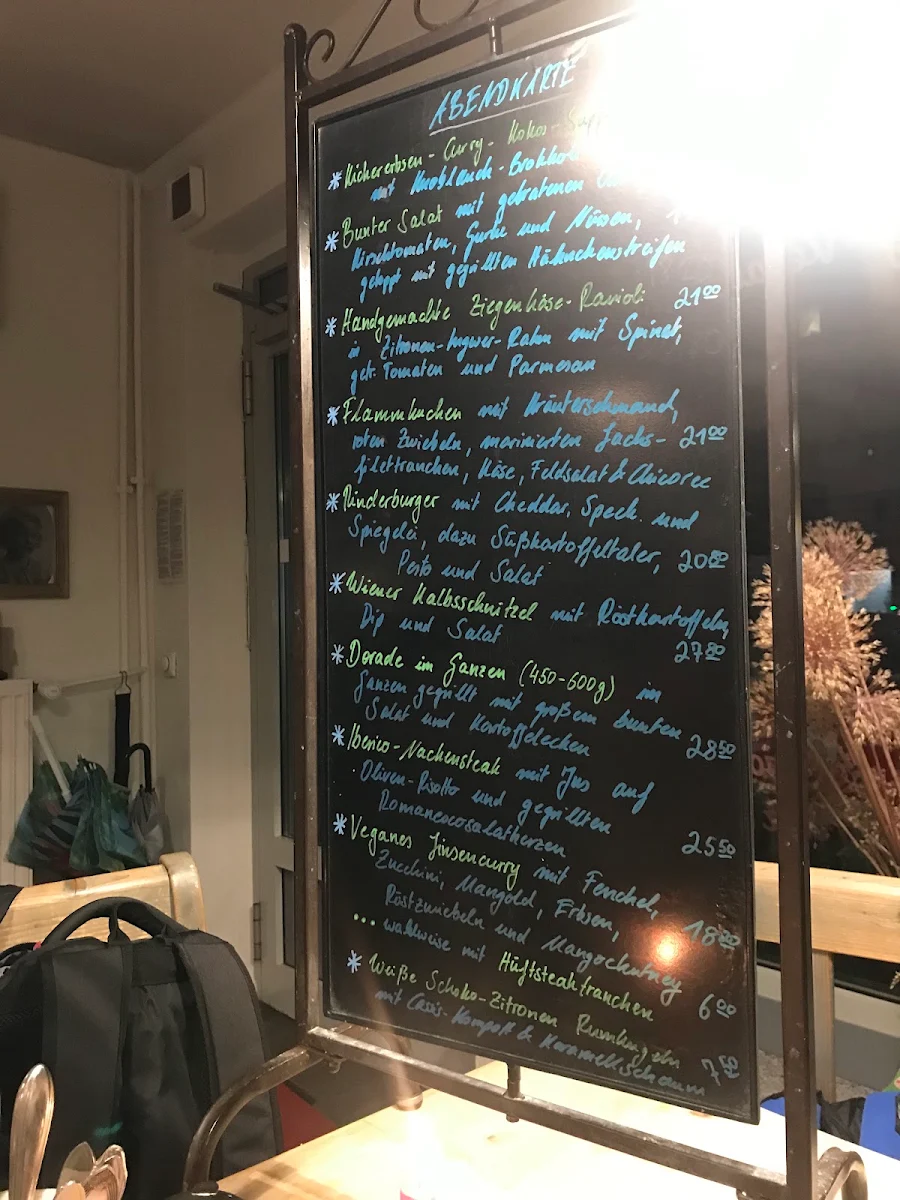 ABENDKARTE
* Kichererbsen - Curry - Kokos - Supp
mit Knoblauch - Brokkol
* Bunter Salat mit gebratenen
Kirschtomaten, Gurke und Nüssen,
getoppt mit gegrillten Hähnchenstreifen
* Handgemachte Ziegenkäse-Ravioli 21⁰⁰
in Zitronen-Ingwer-Rahm mit Spinat,
getr. Tomaten und Parmesan
* Flammkuchen mit Kräuterschmand,
roten Zwiebeln, marinierten Lachs- 21⁰⁰
filettranchen, Käse, Feldsalat & Chicoree
* Rinderburger mit Cheddar, Speck und
Spiegelei, dazu Süßkartoffeltaler, 20⁸⁰
Pesto und Salat
* Wiener Kalbsschnitzel mit Röstkartoffeln,
Dip und Salat 27⁸⁰
* Dorade im Ganzen (450-600g) im
Ganzen gegrillt mit großem bunten
Salat und Kartoffelecken 28⁵⁰
* Iberico-Nackensteak mit Jus auf
Oliven-Risotto und gegrillten
Romanescosalatherzen 25⁵⁰
* Veganes Linsencurry mit Fenchel,
Zucchini, Mangold, Erbsen, 18⁸⁰
Röstzwiebeln und Mangochutney
... wahlweise mit Hüftsteaktranchen 6⁰⁰
* Weiße Schoko-Zitronen
mit Casis-Kompott & Karamellschaum 7⁵⁰